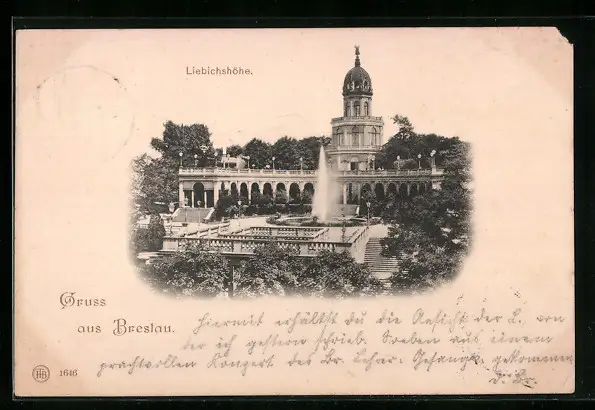 Liebichshöhe.
Gruss
aus Breslau.
Hiermit erhältst du die Ansicht der L. von
der ich gestern schrieb. Soeben aus einem
prachtvollen Konzert des Br. Lehrer-Gesangv. gekommen
HB 1616